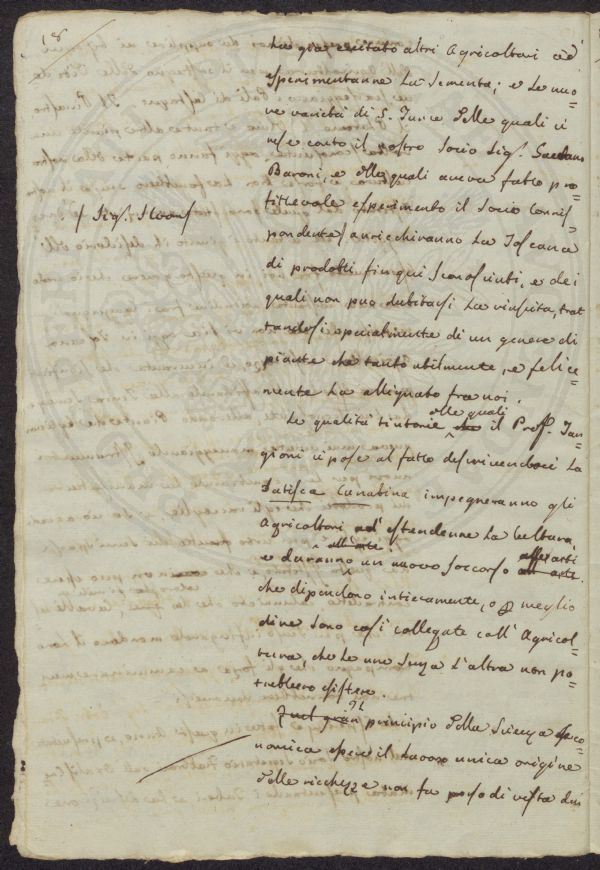 18
ha gia eccitato altri Agricoltori ad
esperimentarne la sementa; e le nuo=
ve varietà di S. Luce delle quali ci
rese conto il nostro Socio Sig. Gaetano
Baroni, e delle quali aveva fatto pro=
fittevole esperimento il Socio Corris=
pondente / arricchiranno la Toscana
/ Sig. Sloon /
di prodotti fin qui sconosciuti, e dei
quali non può dubitarsi la riuscita, trat=
tandosi specialmente di un genere di
piante che tanto utilmente, e felice=
mente ha allignato fra noi.
Le qualità tintorie che il Prof. Tar=
alle quali
gioni ci pose al fatto descrivendoci la
Datisca Canabina impegneranno gli
Agricoltori ad estenderne la cultura,
e daranno un nuovo soccorso all' arte
all' arte
alle arti
che dipendono intieramente, o p meglio
dire sono così collegate coll' Agricol=
tura, che le une senza l'altra non po=
trebbero esistere.
Quel gran principio della Scienza eco=
Il
nomica essere il lavoro unica origine
delle ricchezze non fu perso di vista dai